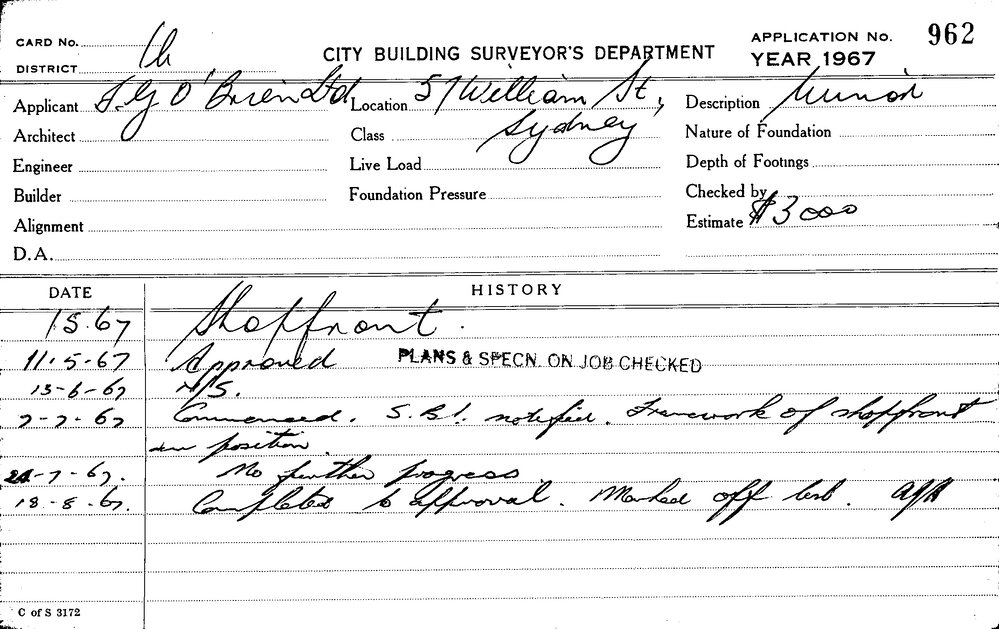 CARD No.
DISTRICT
CITY BUILDING SURVEYOR'S DEPARTMENT
APPLICATION No. 962
YEAR 1967
Applicant F.G O'Brien Ltd Location 57 William St, Sydney Description Minor
Architect Class Nature of Foundation
Engineer Live Load Depth of Footings
Builder Foundation Pressure Checked by
Alignment Estimate $3000
D.A.
DATE HISTORY
1.5.67 Shopfront.
11.5-67 Approved PLANS & SPECN. ON JOB CHECKED
13-6-67 N/S.
7-7-67 Commenced. S.B.I. notified. Framework of shopfront
in position.
24-7-67. No further progress
18-8-67. Completed to approval. Marked off
C of S 3172